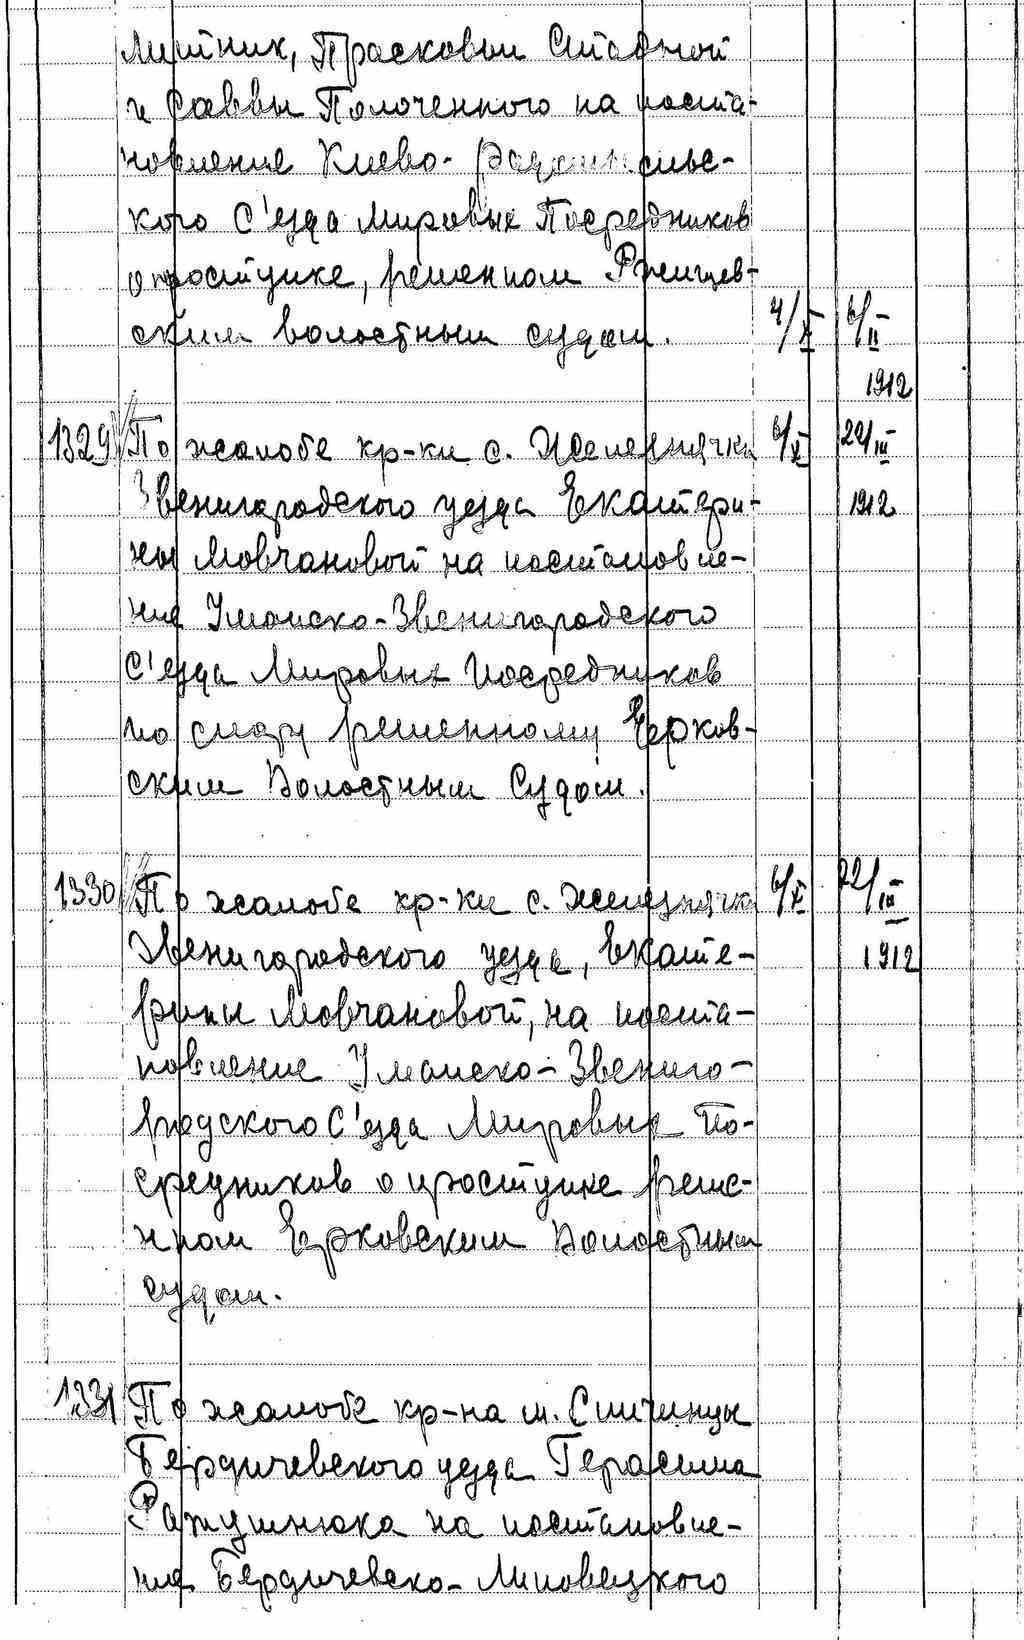 Литник, Прасковьи Стадной
и Саввы Полоченного на поста-
новление Киево-
кого С'езда Мировых Посредников
о проступке, решенном Ржищев-
ским волостным судом. 4/X 6/II
1912
1329 По жалобе кр-ки с. Железнячки 6/X 22/III
Звенигородского уезда Екатери- 1912
ны Мовчановой на постановле-
ние Уманско-Звенигородского
С'езда Мировых Посредников
по спору решенному Ерков-
ским Волостным Судом.
1330 По жалобе кр-ки с. Железнячка 6/X 22/III
Звенигородского уезда, Екате- 1912
рины Мовчановой, на поста-
новление Уманско-Звениго-
родского С'езда Мировых По-
средников о проступке реше-
нном Ерковским Волостным
судом.
1331 По жалобе кр-на м. Спичинцы
Бердичевского уезда Герасима
Ратушнюка на постановле-
ние Бердичевско-Липовецкого